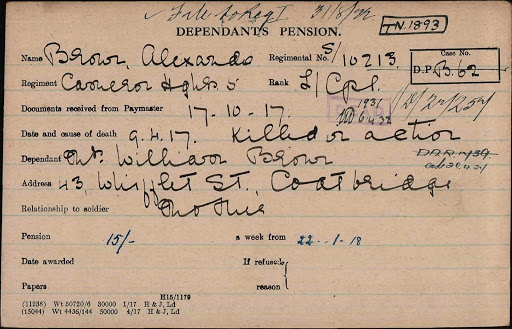 File to Reg I 31/8/22
T.N. 1893
DEPENDANT'S PENSION.
Name Brown, Alexander Regimental No. S/10213 Case No.
Regiment Cameron Hghrs 5 Rank L/Cpl. D.P. B.62
Documents received from Paymaster 17-10-17.
Date and cause of death 9.4.17. Killed or action
Dependant Mrs. William Brown
Address 43, Whifflet St., Coatbridge
Relationship to soldier Mother
Pension 15/- a week from 22-1-18
Date awarded If refused
Papers reason
H15/1179
(11238) Wt 50720/6 30000 1/17 H & J, Ld
(15044) Wt 4436/144 50000 4/17 H & J, Ld